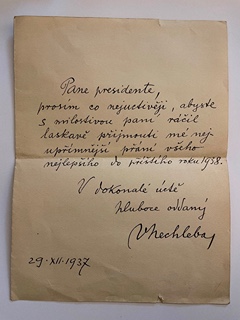 Pane presidente,
prosím co nejuctivěji, abyste
s milostivou paní ráčil
laskavě přijmouti mé nej
upřímnější přání všeho
nejlepšího do příštího roku 1938.
V dokonalé úctě
hluboce oddaný
VNechleba
29.XII.1937